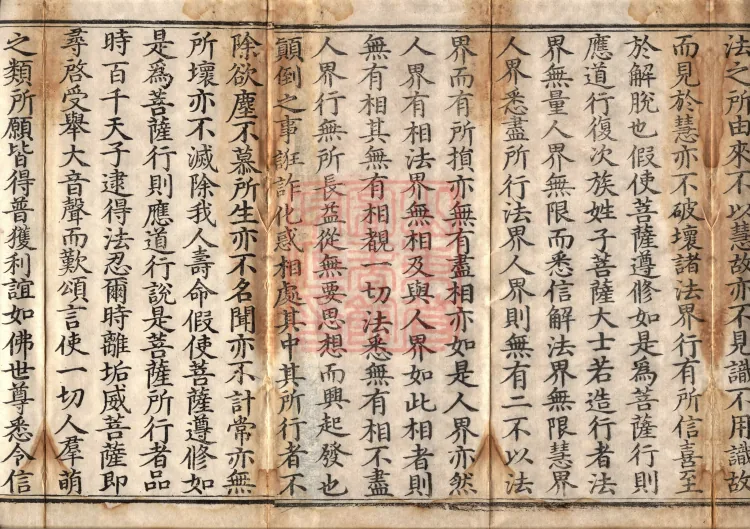 法之所由來不以慧故亦不見識不用識故
而見於慧亦不破壞諸法界行有所信喜至
於解脫也假使菩薩遵修如是為菩薩行則
應道行復次族姓子菩薩大士若造行者法
界無量人界無限而悉信解法界無限慧界
人界悉盡所行法界人界則無有二不以法
界而有所損亦無有盡相亦如是人界亦然
人界有相法界無相及與人界如此相者則
無有相其無有相覩一切法悉無有相不盡
人界行無所長益從無要思想而興起發也
顛倒之事誑詐化惑相處其中其所行者不
除欲塵不慕所生亦不名聞亦不計常亦無
所壞亦不滅除我人壽命假使菩薩遵修如
是為菩薩行則應道行說是菩薩所行者品
時百千天子逮得法忍爾時離垢威菩薩即
尋啓受舉大音聲而歎頌言使一切人羣萌
之類所願皆得普獲利誼如佛世尊悉令信